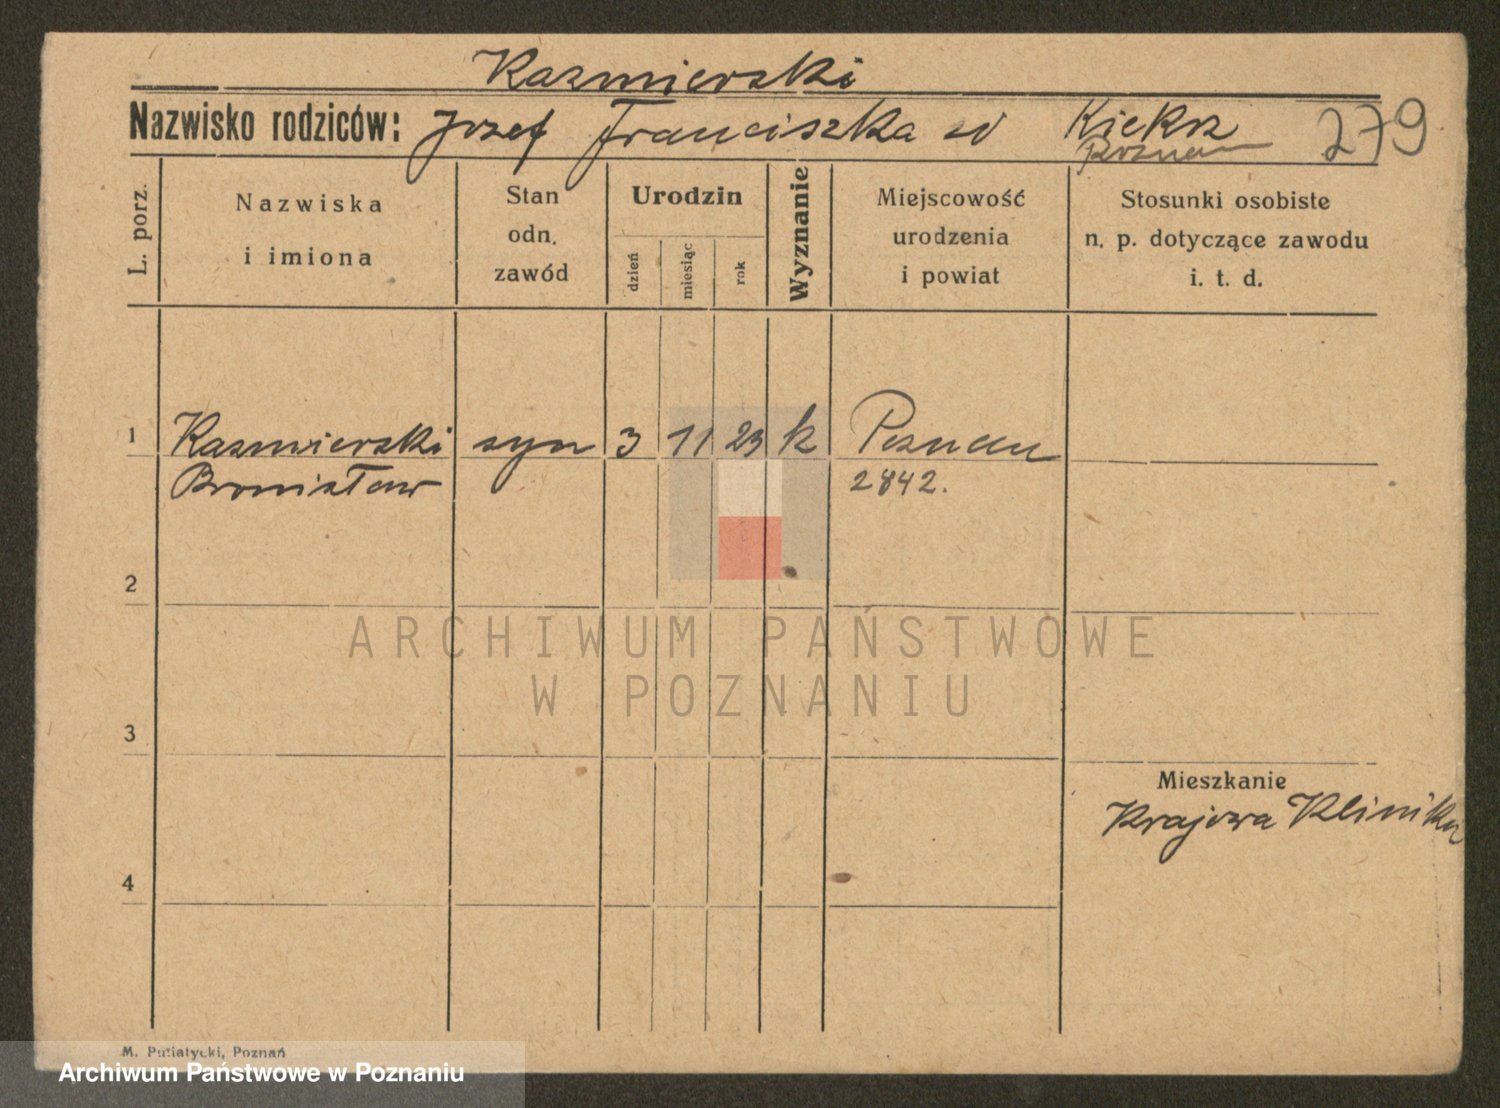 Kazmierski
Nazwisko rodziców: Jozef Franciszka w Kiekrz 279
Poznan
L. porz.
Nazwiska
i imiona
Stan
odn.
zawód
Urodzin
dzień
miesiąc
rok
Wyznanie
Miejscowość
urodzenia
i powiat
Stosunki osobiste
n. p. dotyczące zawodu
i. t. d.
1 Kazmierski syn 3 11 23 k Poznan
Bronisław 2842.
2
ARCHIWUM PAŃSTWOWE
W POZNANIU
3
Mieszkanie
Krajowa Klinika
4
M. Putiatycki, Poznań
Archiwum Państwowe w Poznaniu